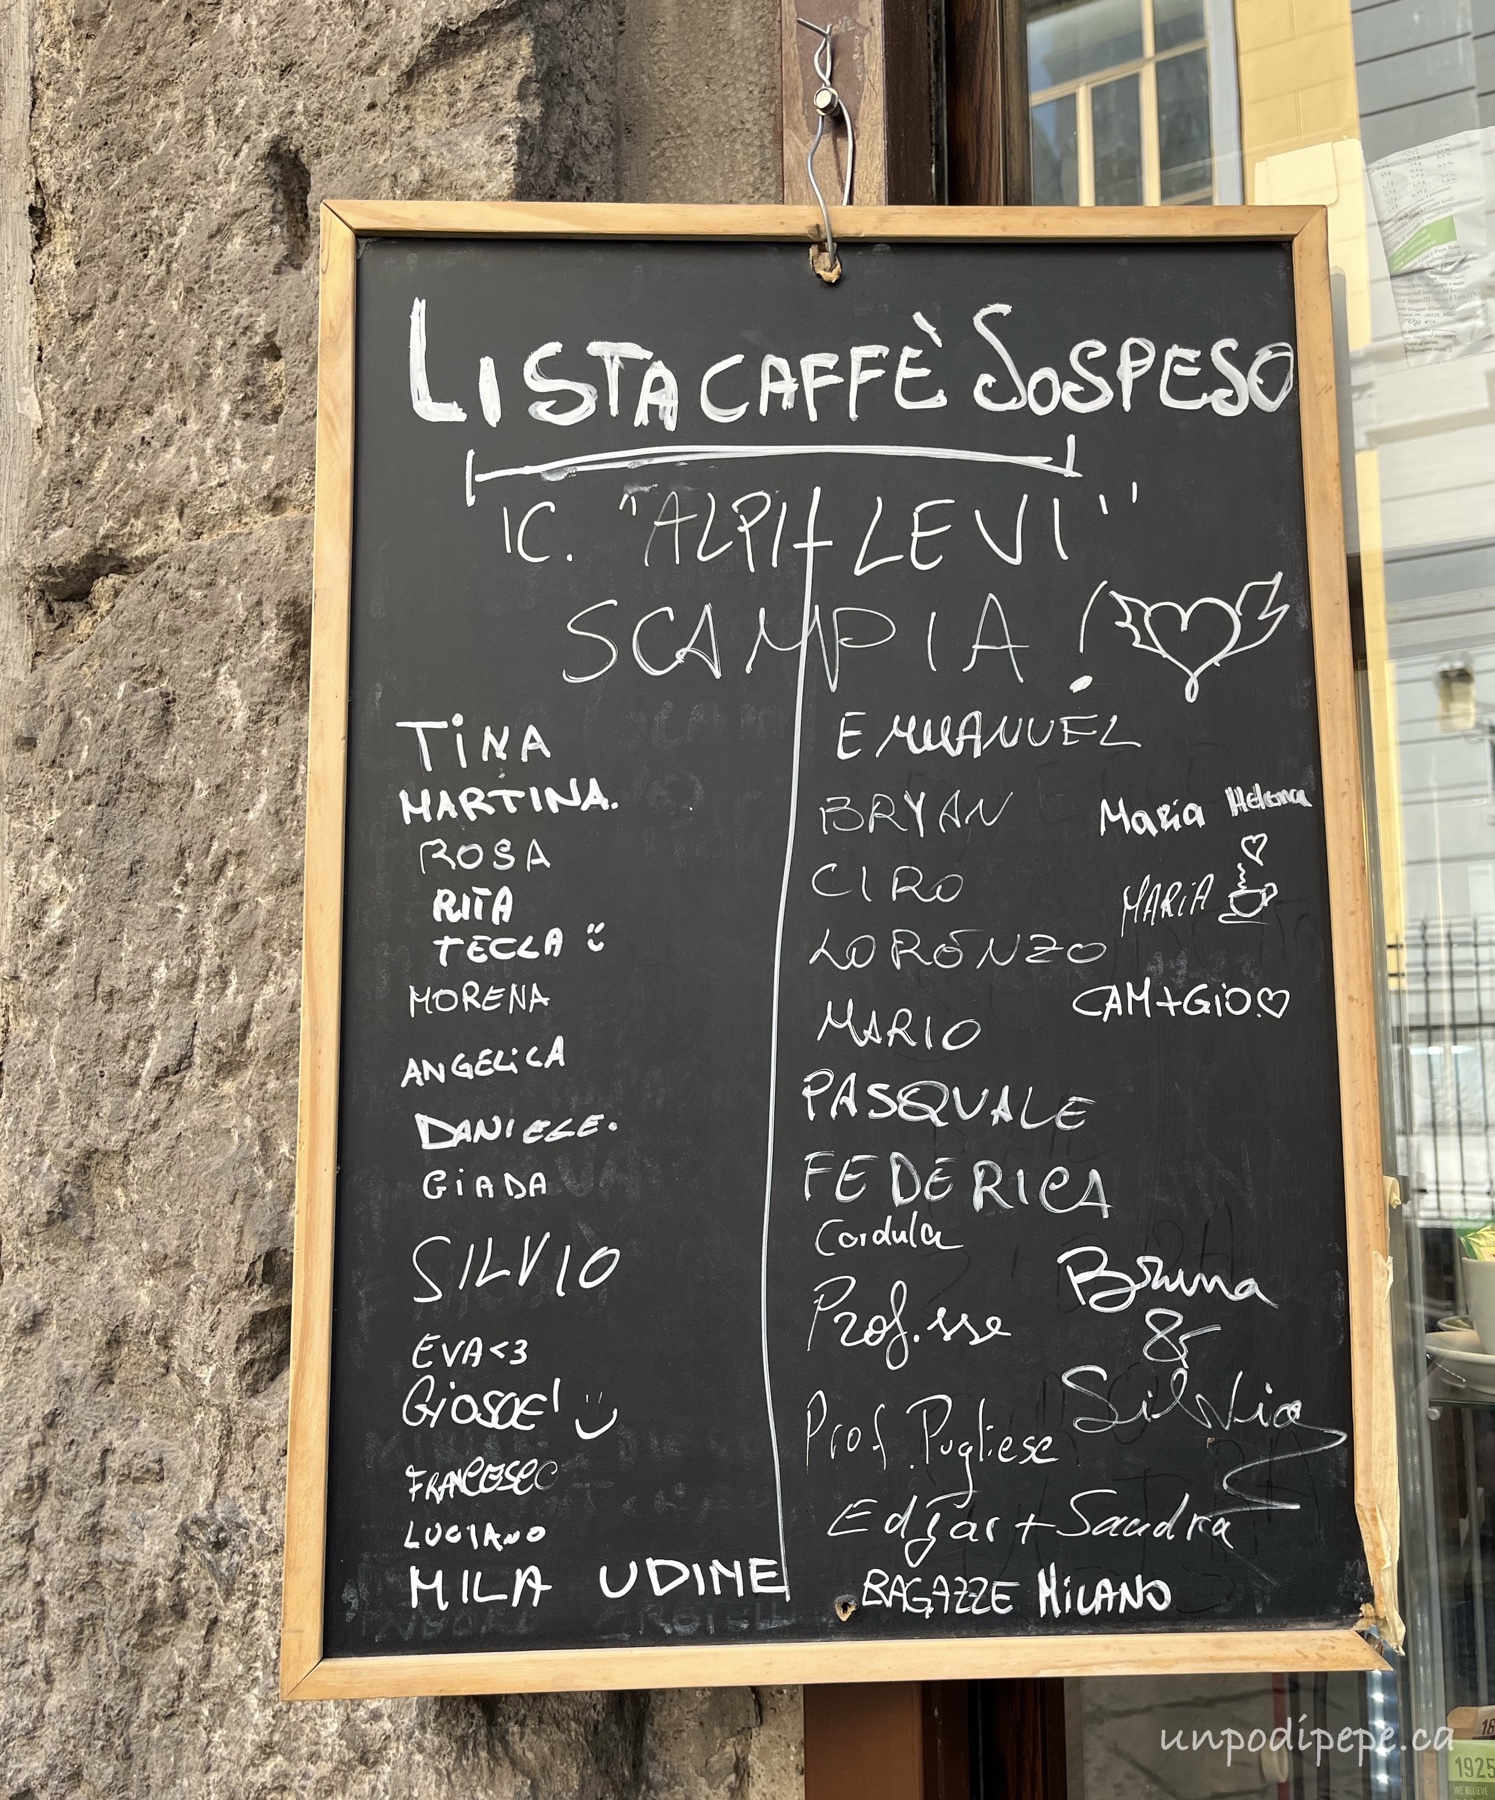 LISTA CAFFÈ SOSPESO
IC. "ALPI-LEVI"
SCAMPIA!
TINA
MARTINA.
ROSA
RITA
TECLA
MORENA
ANGELICA
DANIELE.
GIADA
SILVIO
EVA<3
GIOSUE'
FRANCESCO
LUCIANO
MILA UDINE
EMMANUEL
BRYAN
CIRO
LORENZO
MARIO
PASQUALE
FEDERICA
Cordula
Prof.sse
Prof. Pugliese
Edgar + Sandra
RAGAZZE MILANO
Maria Helena
MARIA
CAM+GIO.♡
Bruna
&
Silvia
unpodipepe.ca
1925